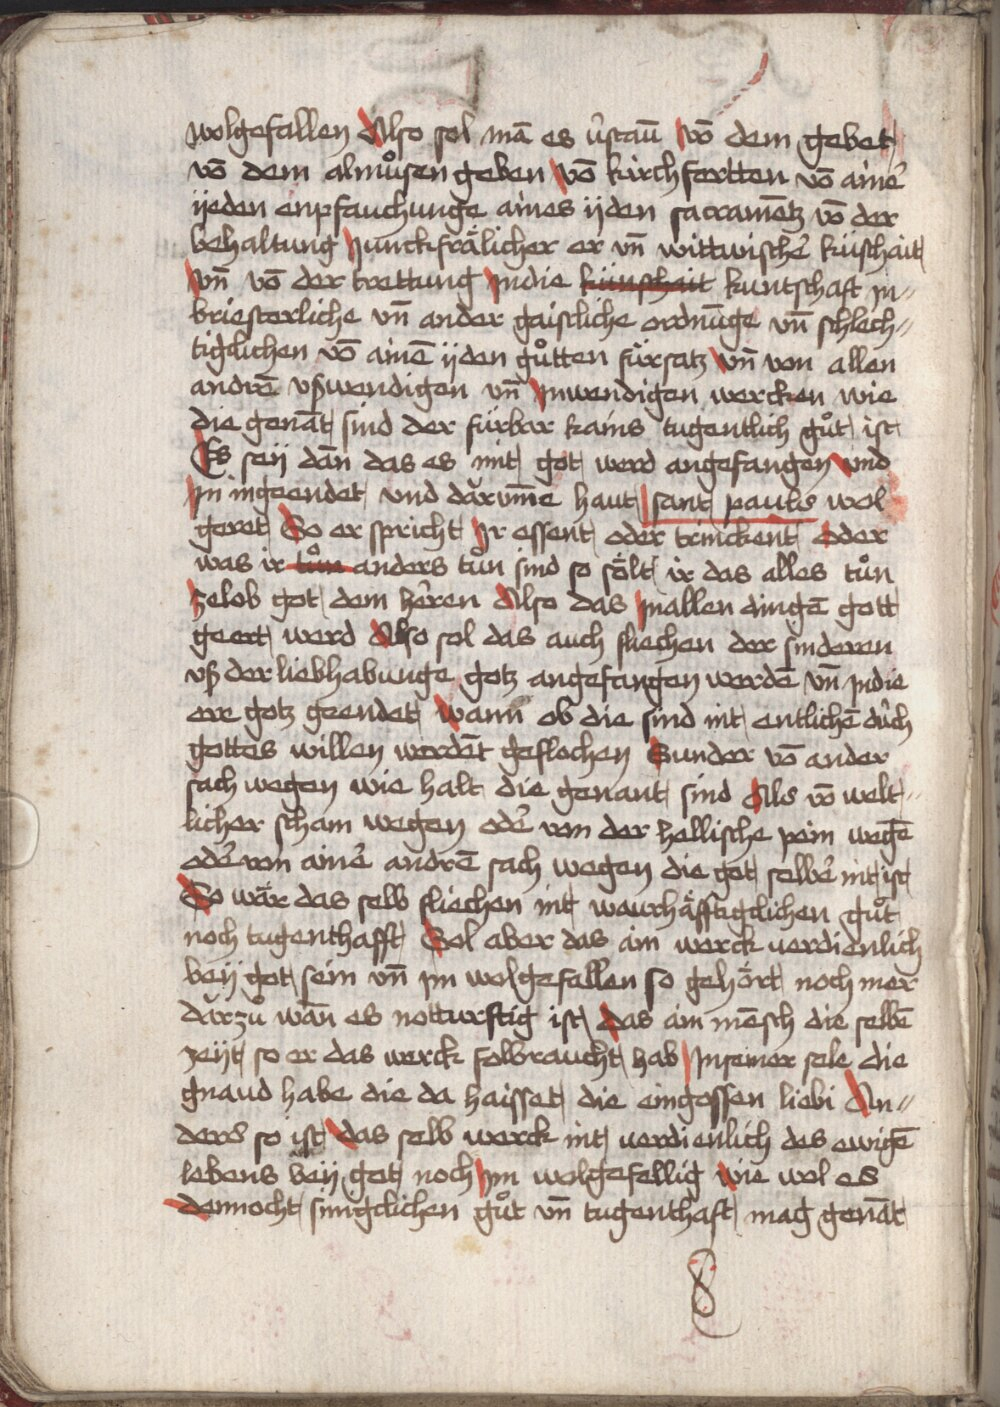 wolgefallen Also sol mā es v̂stau̅ vō dem gebet
vō dem almůsen geben vō kirchfertten vō ainē
ijeden enpfauchunge aines ijden sacramētz vō der
behaltung Junckfrälicher er vn̄ wittwischē kúschait
vn̄ vō der trettung Jn die künschait kuntschaft in-
briesterliche vn̄ ander gaistliche ordnu̅ge vn̄ schlech-
tigclichen vō ainē ijden gůtten fürsatz vn̄ von allen
andrē vßwendigen vn̄ Jnwendigen wercken wie
die genāt sind der fürbar kains tugentlich gůt ist
Es seij dān das es mit got werd angefangen vnd
Jn in geendet vnd darvm̄e haut sant pauls wol
geret So er spricht Jr essent oder trinckent oder
was ir tůn anders tůn sind so sölt ir das alles tůn
ze lob got dem hēren Also das Jn allen dingē gott
geert werd Also sol das auch fliechen der sinderen
vß der liebhabunge gotz angefangen werdē vn̄ Jn die
ere gotz geendet wann ob die sind nit entlichē dúch
gottes willen werdēt geflochen Sunder vō ander
sach wegen wie halt die genant sind Als vō welt-
licher scham wegen odē von der hellische pein wegē
odē von ainē andrē sach wegen die got selbē nit ist
So wär das selb fliechen nit waurhäfftigclichen gůt
noch tugenthafft Sol aber das ain werck uerdienlich
beij got sein vn̄ im wolgefallen so gehört noch mer
darzů wān es notturftig ist das ain mēsch die selbē
zeijt so er das werck folbraucht hab Jn seiner sele die
gnaud habe die da haisset die eingossen liebi An-
ders so ist das selb werck nit uerdienlich des ewigē
lebens beij got noch im wolgefellig wie wol es
dennocht sinigclichen gůt vn̄ tugenthaft mag genāt